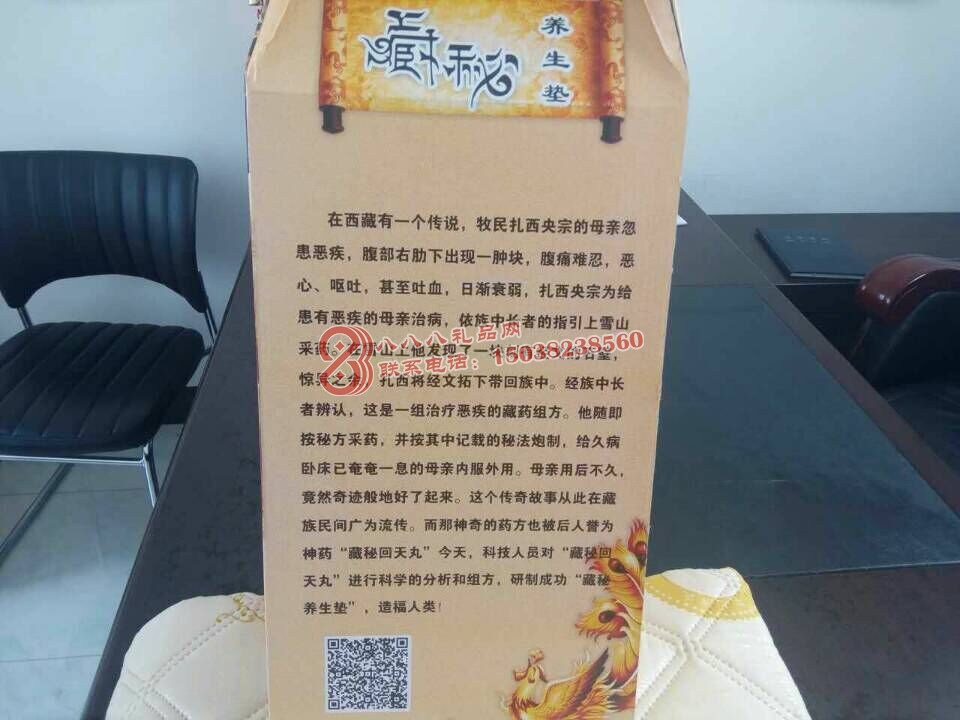 藏秘
养生垫
在西藏有一个传说，牧民扎西央宗的母亲忽
患恶疾，腹部右肋下出现一肿块，腹痛难忍，恶
心、呕吐，甚至吐血，日渐衰弱，扎西央宗为给
患有恶疾的母亲治病，依族中长者的指引上雪山
采药。在雪山上他发现了一块
八八八礼品网
联系电话：15038238560
惊异之余，扎西将经文拓下带回族中。经族中长
者辨认，这是一组治疗恶疾的藏药组方。他随即
按秘方采药，并按其中记载的秘法炮制，给久病
卧床已奄奄一息的母亲内服外用。母亲用后不久，
竟然奇迹般地好了起来。这个传奇故事从此在藏
族民间广为流传。而那神奇的药方也被后人誉为
神药“藏秘回天丸”今天，科技人员对“藏秘回
天丸”进行科学的分析和组方，研制成功“藏秘
养生垫”，造福人类！